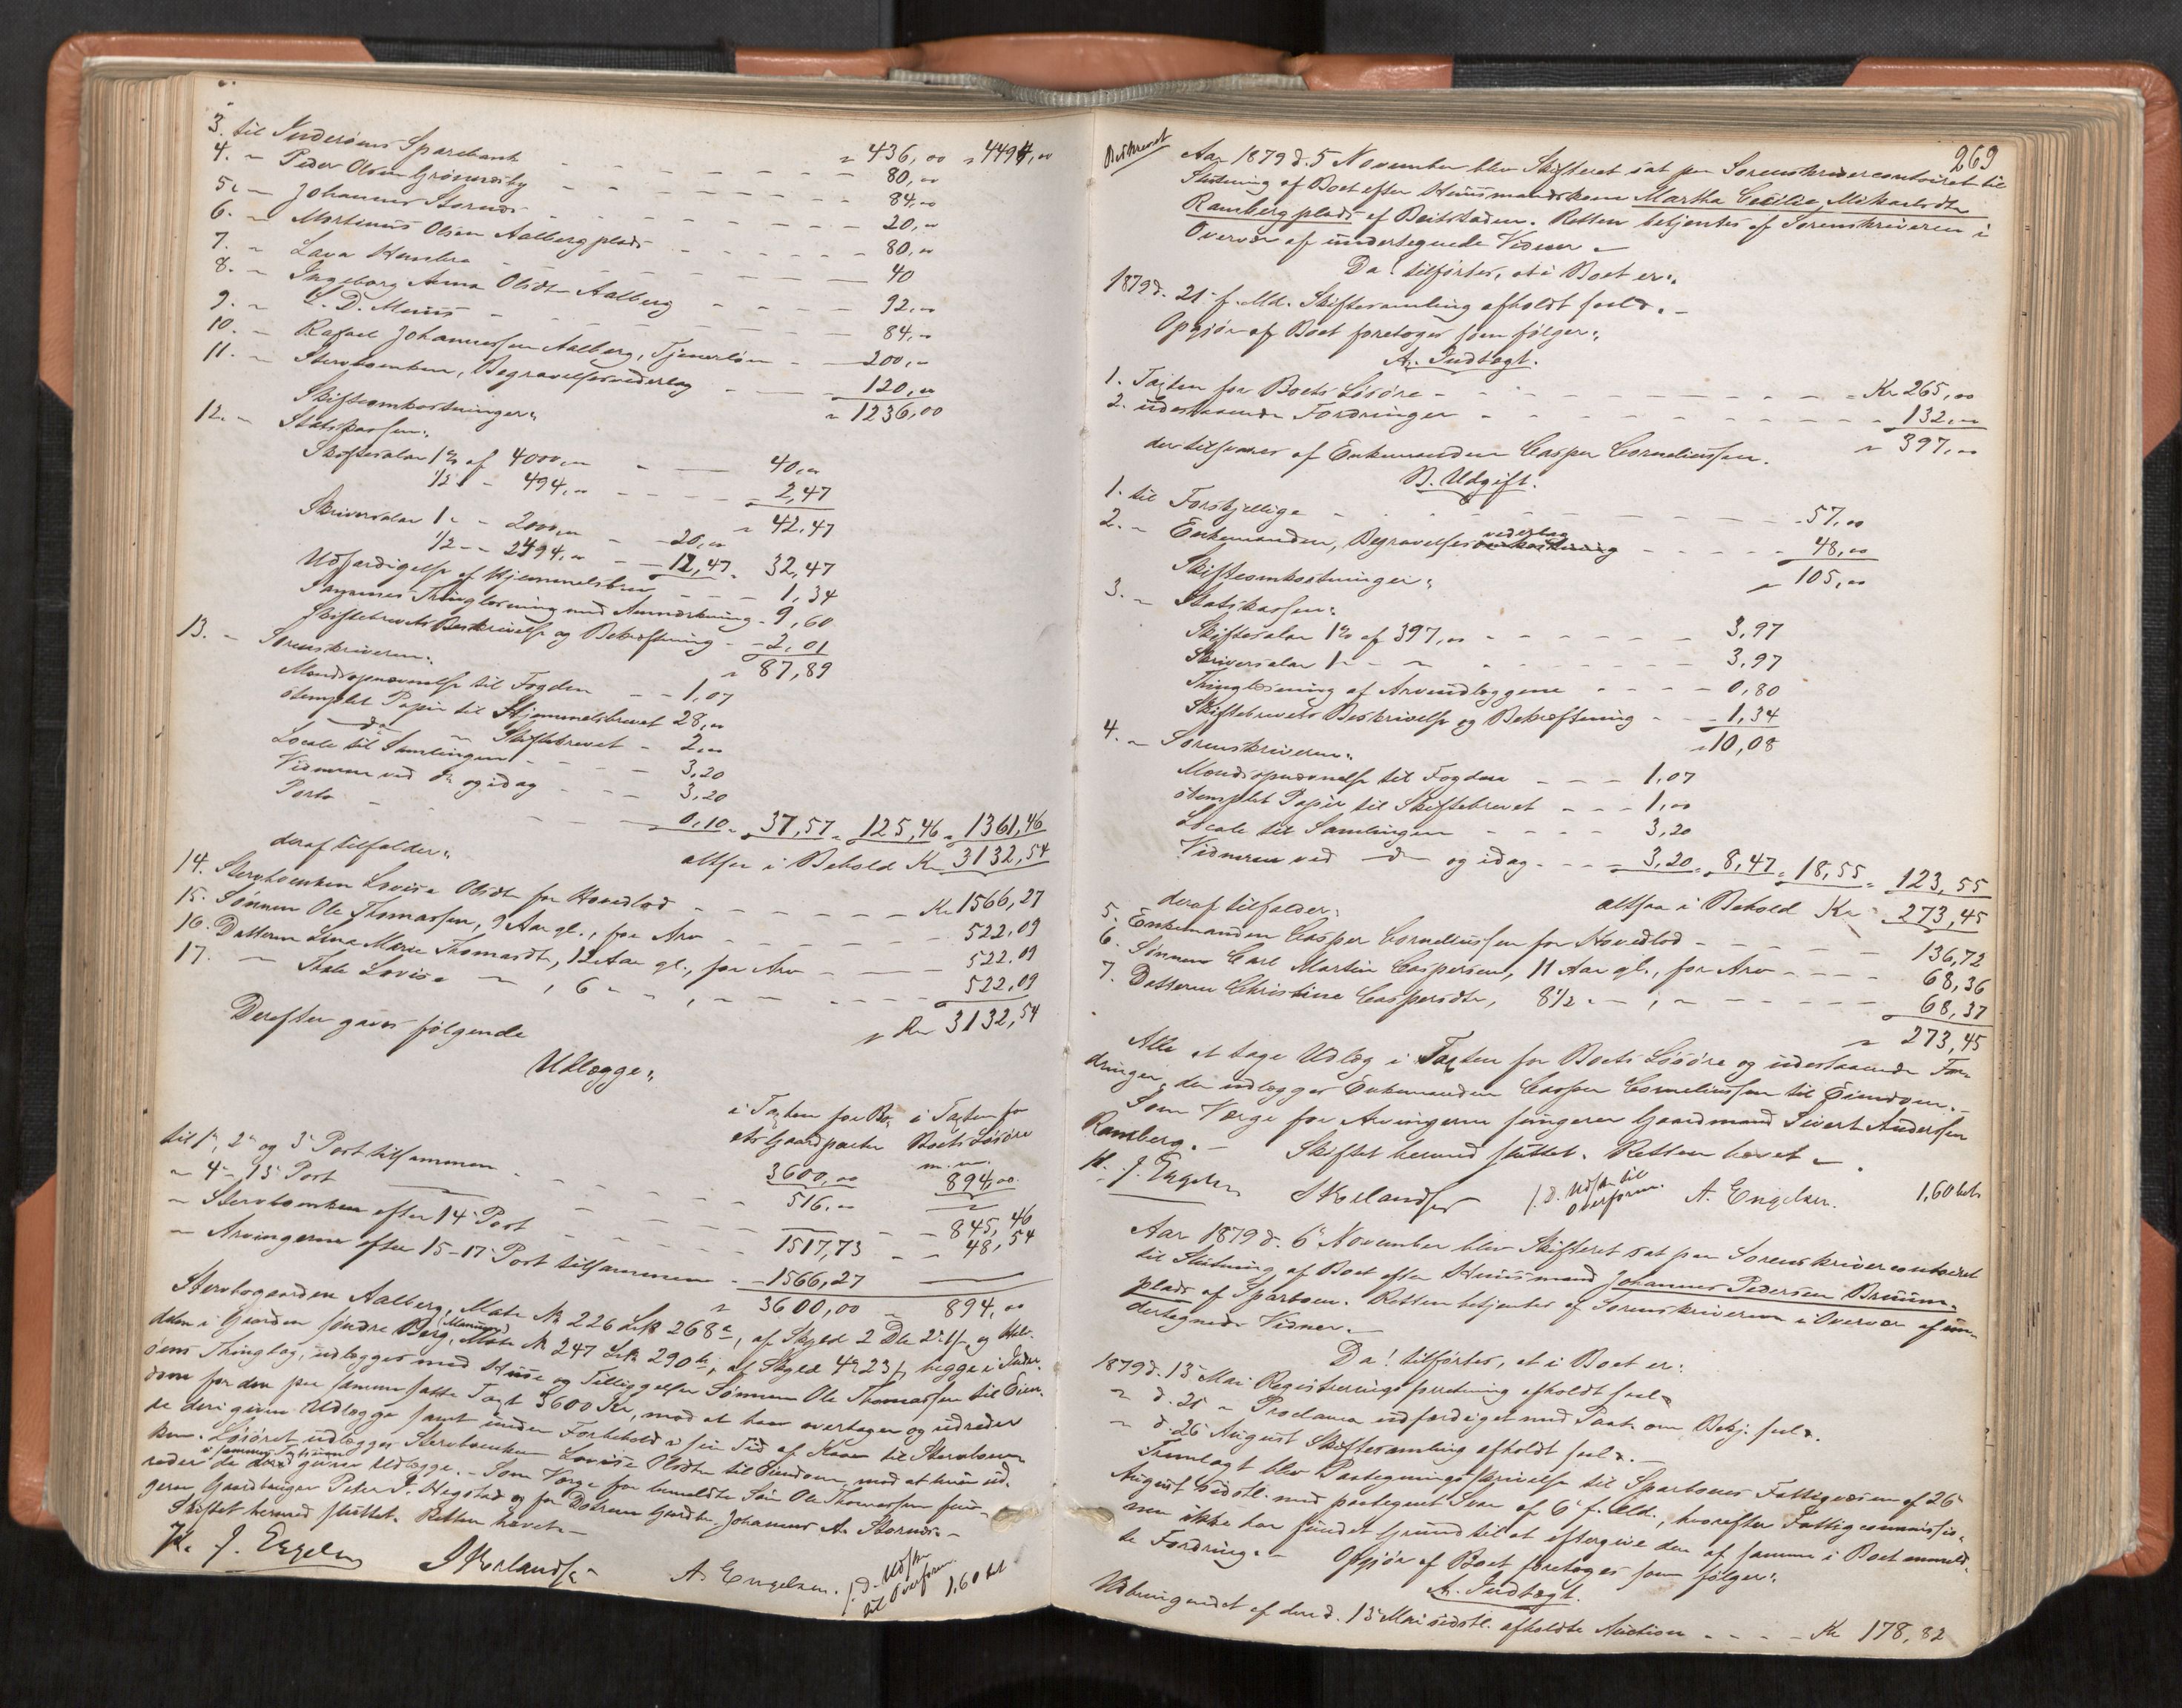 3. til Inderøens Sparebank - - - " 436,00 " 4494,00
4. " Peder Olsen Grønnesby - - - 80,00
5. " Johannes Stornæs - - - 84,00
6. " Martinus Olsen Aalbergplads - - - 20,00
7. " Lava - - - 80,00
8. " Ingeborg Anna Olsdtr Aalberg - - - 40
9. " L. D. - - - 92,00
10. " Rafael Johannessen Aalberg, Tjenerløn - - 84,00
11. " Stervboenken, Begravelsesvederlag - - - 200,00
120,00
Skifteomkostninger: " 1236,00
12. " Statskassen:
Skiftesalær 1% af 4000,00 - - 40,00
1/2 " - 494,00 - - - 2,47
" 42,47
Skriversalær 1 " - 2000,00 - - 20,00
1/2 - - 2494,00 - - 12,47 " 32,47
Udfærdigelse af Hjemmelsbrev - - - 1,34
Sammes Thinglæsning med Anmærkning - 9,60
Skiftebrevets Beskrivelse og Bekræftning - - 2,01
" 87,89
13. " Sorenskriveren:
Mandsopnævnelse til Fogden - - 1,07
stemplet Papir til Hjemmelsbrevet 28,00
do " Skiftebrevet - 2,00
Locale til Samlingen - - - - 3,20
Vidnerne ved do og idag - - - 3,20
Porto - - - - 0,10 " 37,57 " 125,46 " 1361,46
altsaa i Behold Kr 3132,54
deraf tilfalder:
14. Stervboenken Lovise Olsdtr for Hovedlod - - - Kr 1566,27
15. Sønnen Ole Thomassen, 9 Aar gl., for Arv - - - 522.09
16. Datteren Lina Marie Thomasdtr, 12 Aar gl., for Arv - - - 522.09
17. " Thale Lovise " , 6 " " , " - - - 522.09
" Kr 3132,54
Derefter gaves følgende
Udlægge:
i Taxten for Bo- i Taxten for
ets Gaardparter Boets Løsøre
m. m.
til 1ste, 2den og 3die Post tilsammen - - - 3600,00 894,00
" 4de - 13de Post - - - 516,00 - - 845,46
" Stervboenken efter 14de Post - - - - - 1517,73 - - 48,54
" Arvingerne efter 15-17de Post tilsammen - - 1566,27
" 3600,00 " 894,00
Stervbogaarden Aalberg, Matr. No 226 Lnr 268a, af Skyld 2 Dlr 2 1 s, og Halv-
delen i Gaarden søndre Berg, Matr No 247 Lnr 290b, af Skyld 4 23 s, begge i Inder-
øens Thinglag, udlægges med Huse og Tilliggelse Sønnen Ole Thomassen til Eien-
dom for den paa samme satte Taxt 3600 Kr, mod at han overtager og udreder
de deri givne Udlægge samt under Forbehold i sin Tid af Kaar til Stervboen-
ken. Løsøret udlægges Stervboenken Lovise Olsdtr til Eiendom mod at hun ud-
reder de deri givne Udlægge. - Som Værge for bemeldte Søn Ole Thomassen fun-
gerer Gaardbruger Peter J. Hegstad og for Døtrene Gaardbr. Johannes A. Stornæs. -
Skiftet hermed sluttet. Retten hævet. -
J. Engelsen Erlandsen A. Engelsen. f. d. Udskr. til Overform. 1,60 bet
269
Beskrevet
Aar 1879 d. 5 November blev Skifteret sat paa Sorenskrivercontoiret til
Slutning af Boet efter Huusmandskone Martha Cecilie Mikalsdtr
Ramberg plads af Beitstaden. Retten betjentes af Sorenskriveren i
Overvær af undertegnede Vidner -
Da! tilførtes, at i Boet er:
1879 d. 21 f. Md. Skiftesamling afholdt saal.
Opgjør af Boet foretoges som følger:
A. Indtægt.
1. Taxten for Boets Løsøre - - - Kr 265,00
2. udestaaende Fordringer - - - 132,00
" 397,00
der tilsvares af Enkemanden Casper Corneliussen.
B. Udgift.
1. til Forskjellige - - - 57,00
2. " Enkemanden, Begravelsesvederlag - - - 48,00
Skifteomkostninger: " 105,00
3. " Statskassen:
Skiftesalær 1% af 397,00 - - - 3,97
Skriversalær 1 " - " - - - 3,97
Thinglæsning af Arveudlæggene - - - 0,80
Skiftebrevets Beskrivelse og Bekræftning - - 1,34
" 10,08
4. " Sorenskriveren:
Mandsopnævnelse til Fogden - - - 1,07
stemplet Papir til Skiftebrevet - - - 1,00
Locale til Samlingen - - - - 3,20
Vidnerne ved do og idag - - - 3,20 " 8,47 " 18,55 " 123,55
altsaa i Behold Kr 273,45
deraf tilfalder:
5. Enkemanden Casper Corneliussen for Hovedlod - - - 136,72
6. Sønnen Carl Martin Caspersen, 11 Aar gl., for Arv - - - 68,36
7. Datteren Christine Caspersdtr, 8 1/2 " - , " - - - 68,37
" 273,45
Alle at tage Udlæg i Taxten for Boets Løsøre og udestaaende For-
dringer, der udlægges Enkemanden Casper Corneliussen til Eiendom. -
Som Værge for Arvingerne fungerer Gaardmand Sivert Andersen
Ramberg. - Skiftet hermed sluttet. Retten hævet -
J. Engelsen Erlandsen f. d. Udskr. til Overform. A. Engelsen. 1,60 bet
Aar 1879 d. 6 November blev Skifteret sat paa Sorenskrivercontoiret
til Slutning af Boet efter Huusmand Johannes Pedersen Bruum-
plads af Sparboen. Retten betjentes af Sorenskriveren i Overvær af un-
dertegnede Vidner. -
Da! tilførtes, at i Boet er:
1879 d. 13 Mai Registreringsforretning afholdt saal.
" d. 21 " Proclama udfærdiget med Paat. om Bekj. saal.
" d. 26 August Skiftesamling afholdt saal. -
Fremlagt blev Paategningsskrivelse til Sparboens Fattigvæsen af 26
August sidstl. med paategnet Svar af 6 f. Md., hvorefter Fattigcommissio-
nen ikke har fundet Grund til at eftergive den af samme i Boet anmeld-
te Fordring. - Opgjør af Boet foretoges som følger:
A. Indtægt.
Udbringendet af den d. 13 Mai sidstl. afholdte Auction - - - - Kr 178,82